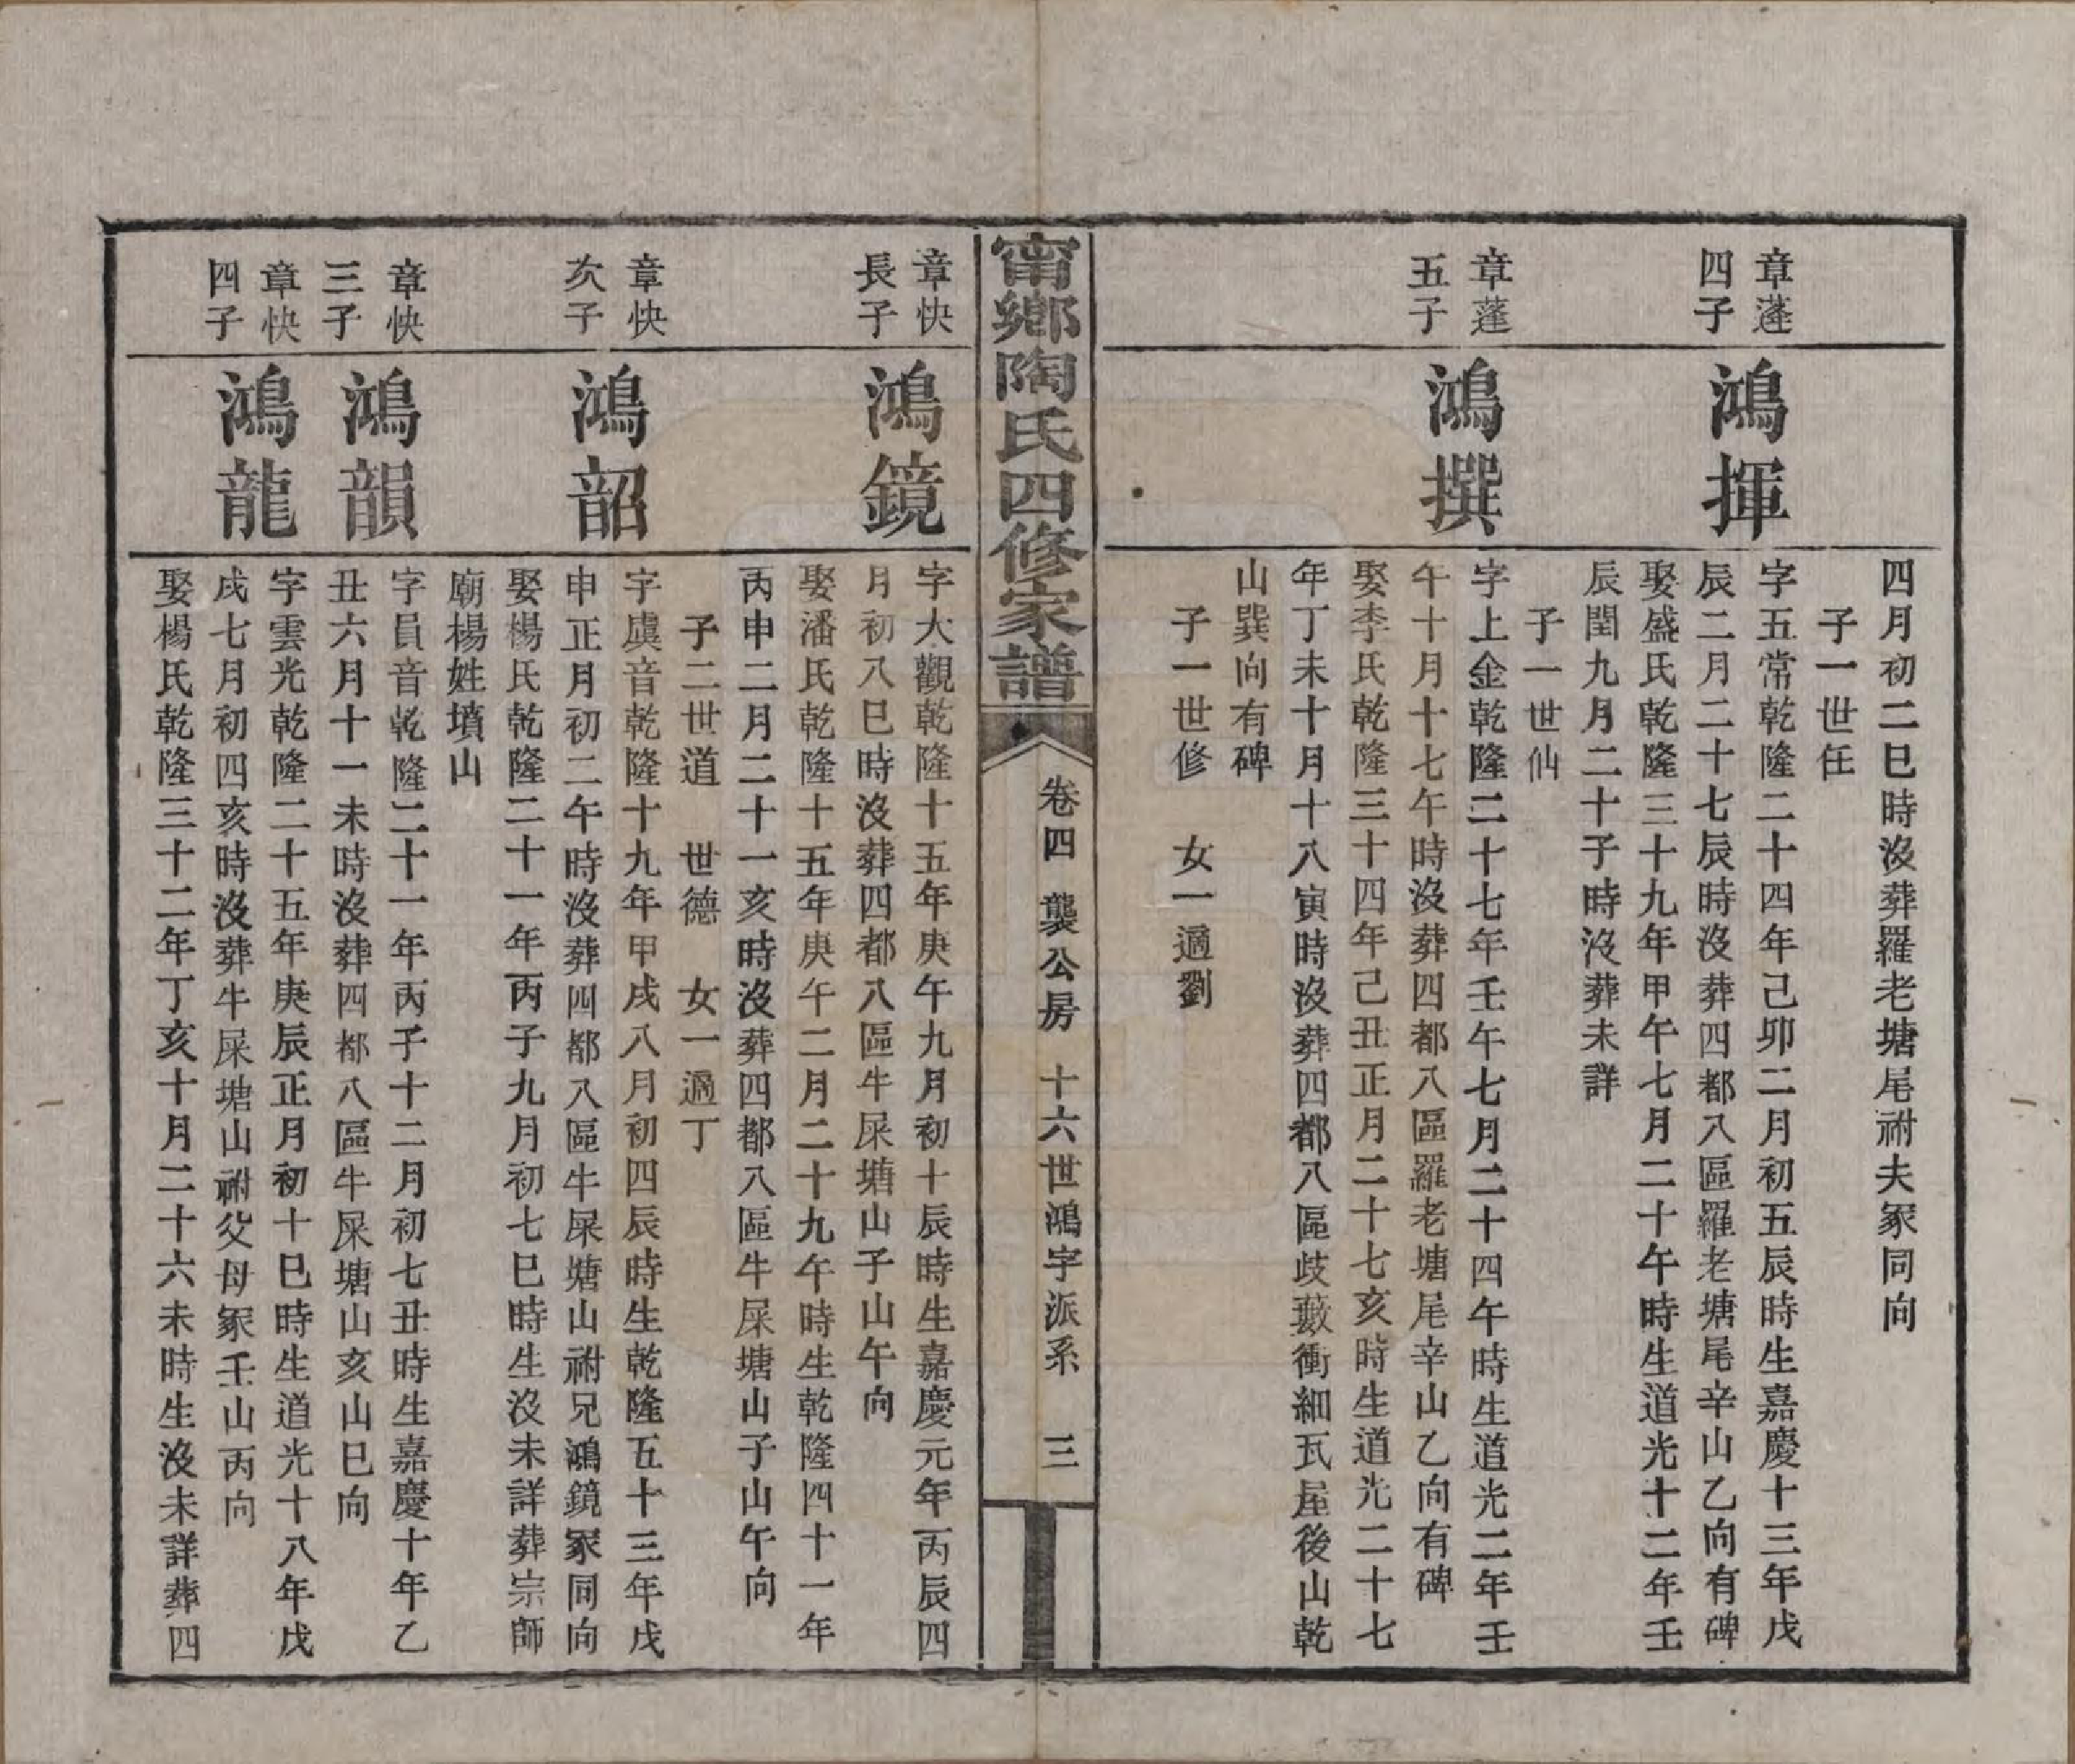 四月初二巳時沒葬羅老塘尾祔夫冢同向
子一世任
章蓬四子
鴻揮
字五常乾隆二十四年己卯二月初五辰時生嘉慶十三年戊
辰二月二十七辰時沒葬四都八區羅老塘尾辛山乙向有碑
娶盛氏乾隆三十九年甲午七月二十午時生道光十二年壬
辰閏九月二十子時沒葬未詳
子一世仙
章蓬五子
鴻撰
字上金乾隆二十七年壬午七月二十四午時生道光二年壬
午十月十七午時沒葬四都八區羅老塘尾辛山乙向有碑
娶李氏乾隆三十四年己丑正月二十七亥時生道光二十七
年丁未十月十八寅時沒葬四都八區歧藪衝細瓦屋後山乾
山巽向有碑
子一世修 女一適劉
甯鄉陶氏四修家譜 卷四 龔公房 十六世鴻字派系 三
章快長子
鴻鏡
字大觀乾隆十五年庚午九月初十辰時生嘉慶元年丙辰四
月初八巳時沒葬四都八區牛屎塘山子山午向
娶潘氏乾隆十五年庚午二月二十九午時生乾隆四十一年
丙申二月二十一亥時沒葬四都八區牛屎塘山子山午向
子二世道 世德 女一適丁
章快次子
鴻韶
字虞音乾隆十九年甲戌八月初四辰時生乾隆五十三年戊
申正月初二午時沒葬四都八區牛屎塘山祔兄鴻鏡冢同向
娶楊氏乾隆二十一年丙子九月初七巳時生沒未詳葬宗師
廟楊姓墳山
章快三子
鴻韻
字員音乾隆二十一年丙子十二月初七丑時生嘉慶十年乙
丑六月十一未時沒葬四都八區牛屎塘山亥山巳向
章快四子
鴻龍
字雲光乾隆二十五年庚辰正月初十巳時生道光十八年戊
戌七月初四亥時沒葬牛屎塘山祔父母冢壬山丙向
娶楊氏乾隆三十二年丁亥十月二十六未時生沒未詳葬四